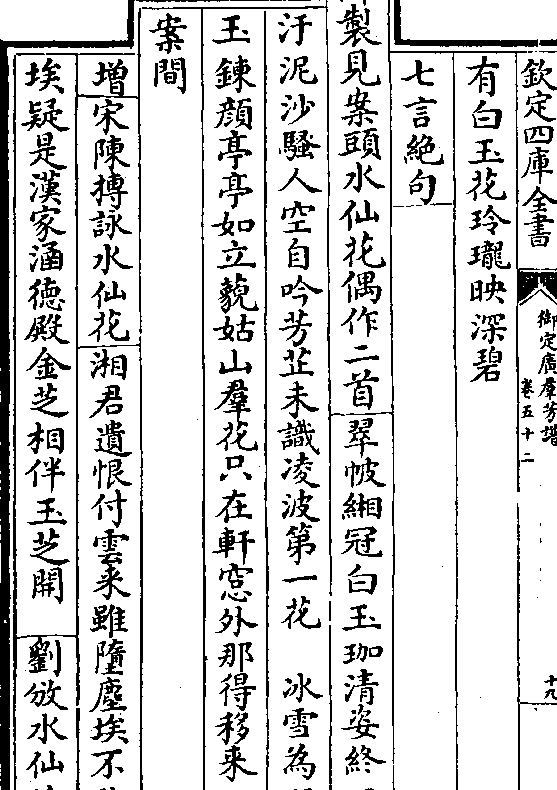 欽定四庫全書
御定廣羣芳譜
卷五十二
十九
有白玉花玲瓏映深碧
七言絕句
製見案頭水仙花偶作二首 翠帔緗冠白玉珈清姿終
汙泥沙騷人空自吟芳芷未識凌波第一花 冰雪為
玉鍊顏亭亭如立藐姑山羣花只在軒窓外那得移来
案間
增宋陳摶詠水仙花 湘君遺恨付雲来雖墮塵埃不
埃疑是漢家涵德殿金芝相伴玉芝開 劉攽水仙